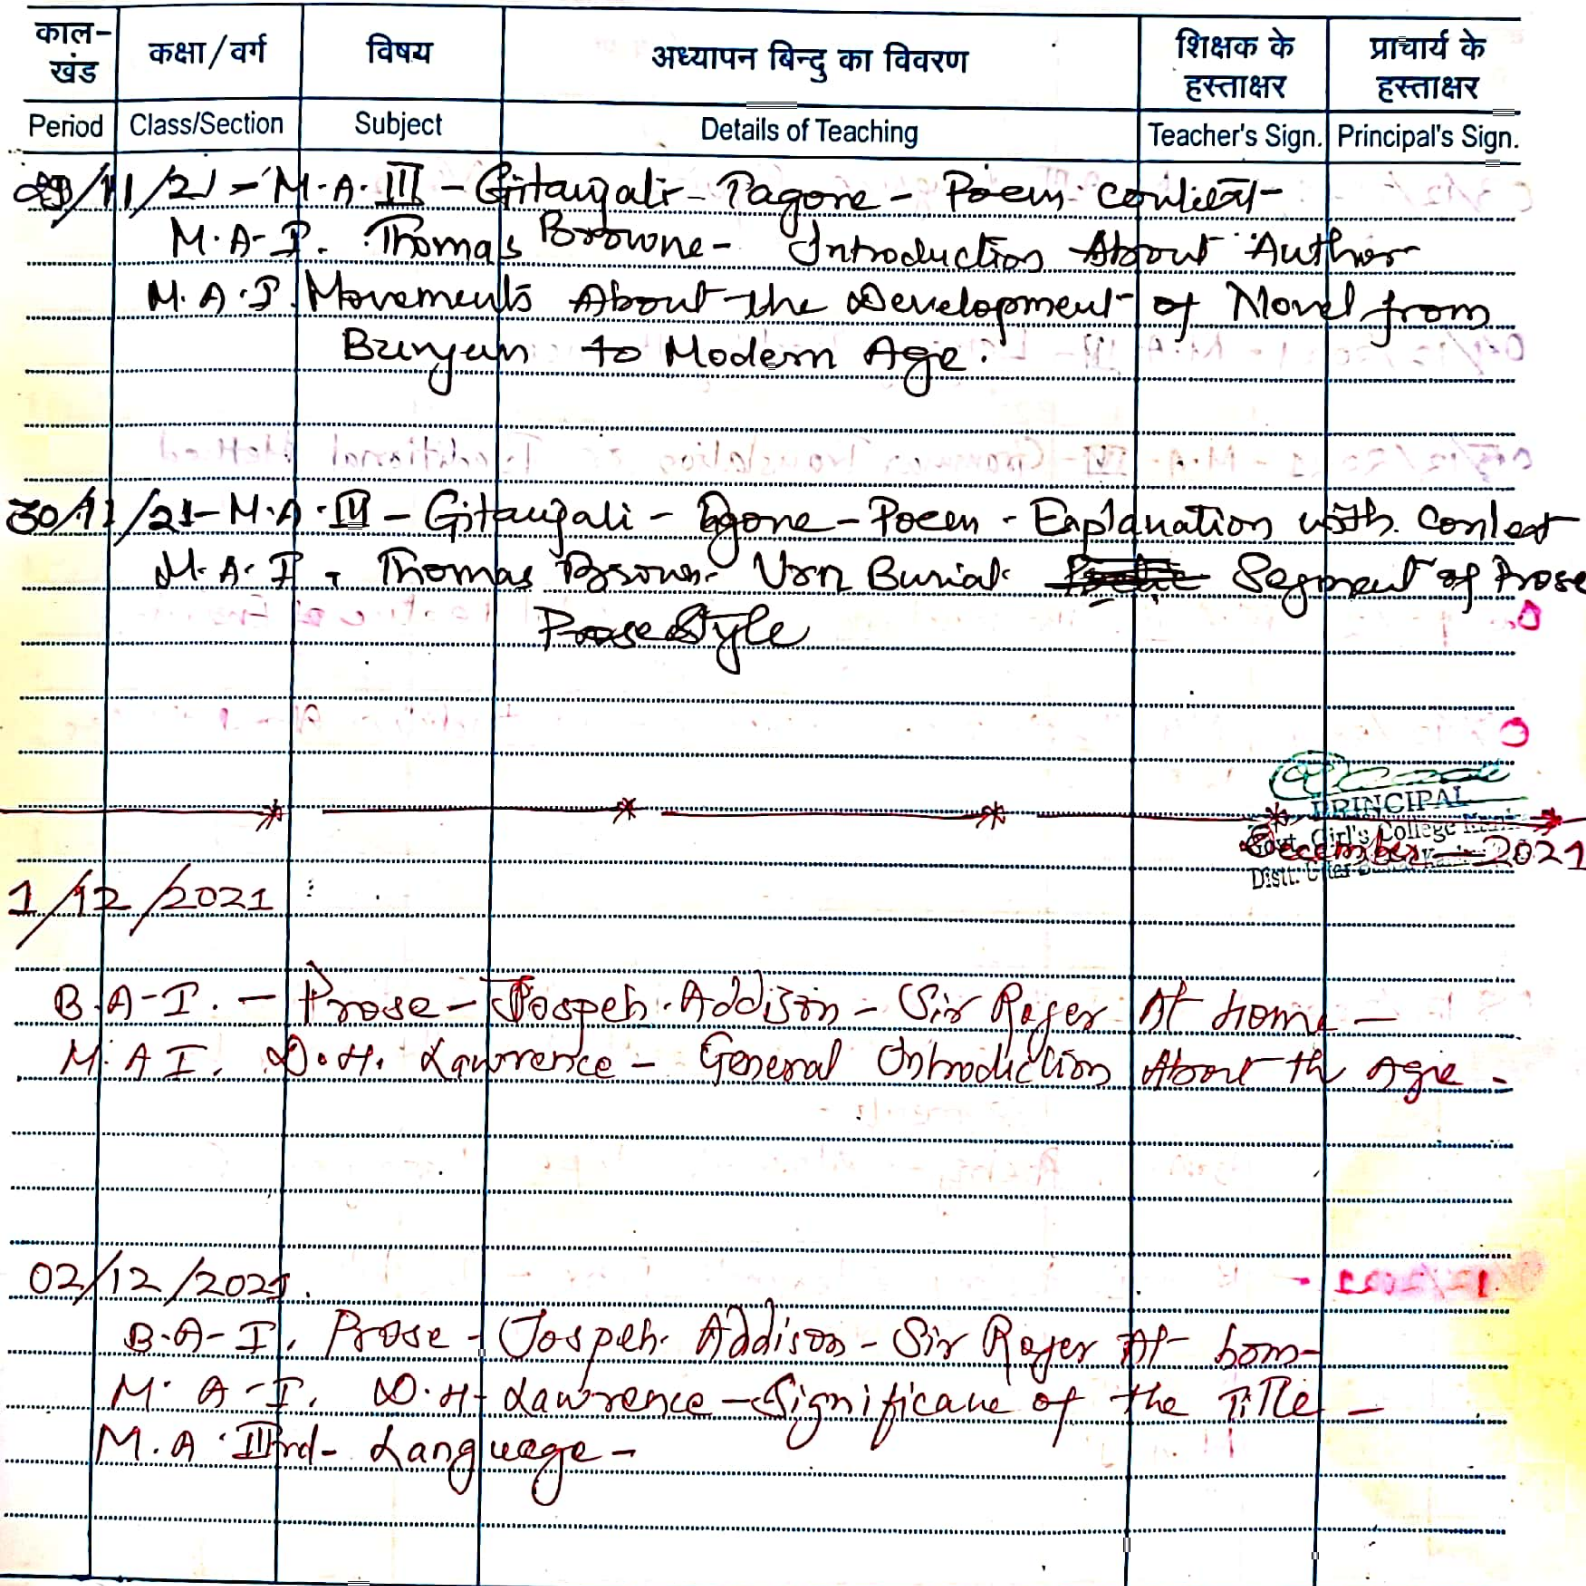 काल-खंड कक्षा/वर्ग विषय अध्यापन बिन्दु का विवरण शिक्षक के हस्ताक्षर प्राचार्य के हस्ताक्षर
Period Class/Section Subject Details of Teaching Teacher's Sign. Principal's Sign.
/11/21 - M.A. III - Gitanjali - Tagore - Poem
M.A-I. Thomas Browne - Introduction About Author
M.A.I. Movements About the Development of Novel from
Bunyan to Modern Age.
30/11/21 - M.A. - Gitanjali - Poem - Explanation with
M.A.I - Thomas Browne Urn Burial Segment of Prose
Prose Style
PRINCIPAL
Govt. Girl's College
December - 2021
Distt.
1/12/2021
B.A-I. - Prose - Jospeh Addison - Sir Roger At home -
M.A I. D.H. Lawrence - General Introduction About th Age -
02/12/2021.
B.A-I. Prose - Jospeh Addison - Sir Roger At hom-
M.A-I. D.H. Lawrence - Significane of the Title -
M.A. IIIrd - Language -